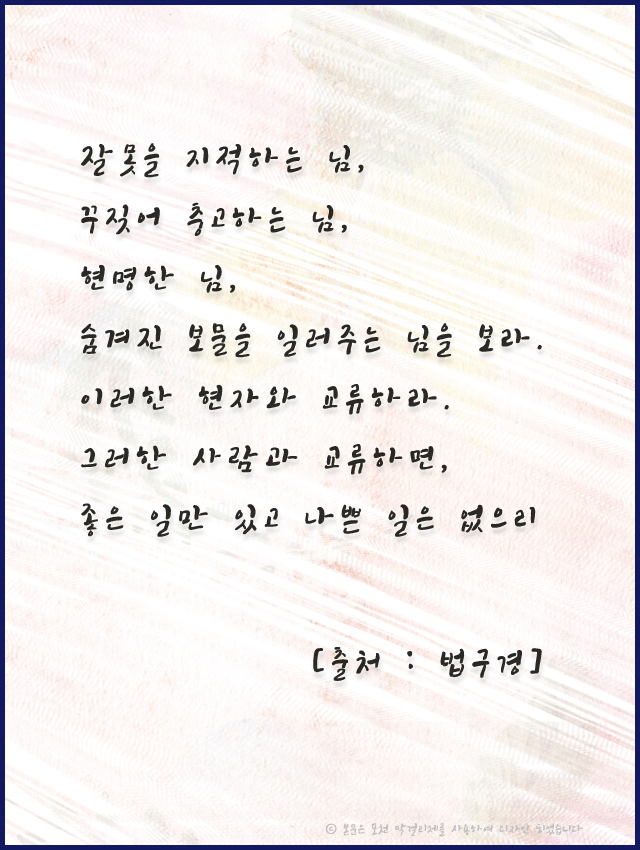 잘못을 지적하는 님,
꾸짖어 충고하는 님,
현명한 님,
숨겨진 보물을 일러주는 님을 보라.
이러한 현자와 교류하라.
그러한 사람과 교류하면,
좋은 일만 있고 나쁜 일은 없으리
[출처 : 법구경]
ⓒ 본문은 포천 막걸리체를 사용하여 디자인 되었습니다